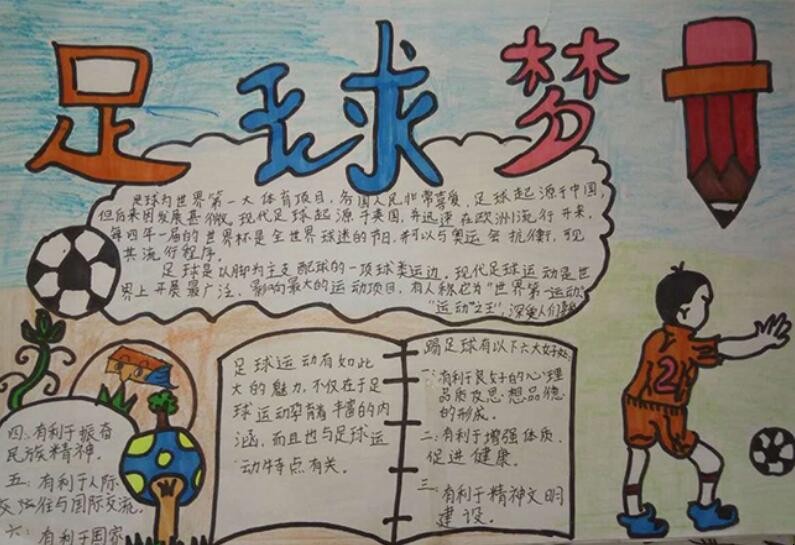 足球梦
足球为世界第一大体育项目，各国人民非常喜爱，足球起源于中国，
但后来因发展甚微。现代足球起源于英国，并迅速在欧洲流行开来，
每四年一届的世界杯是全世界球迷的节日，并可以与奥运会抗衡，可见
其流行程序。
足球是以脚为主支配球的一项球类运边，现代足球运动是世
界上开展最广泛、影响最大的运动项目，有人称它为"世界第一运动"
"运动"之王"，深受人们喜
足球运动有如此
大的魅力，不仅在于足
球运动孕育着丰富的内
涵，而且也与足球运
动特点有关。
踢足球有以下六大好处：
一：有利于良好的心理
品质及思想品德
的形成。
二：有利于增强体质、
促进健康。
三：有利于精神文明
建设。
四：有利于振奋
民族精神。
五：有利于人际
交流往与国际交流。
六：有利于国家
2